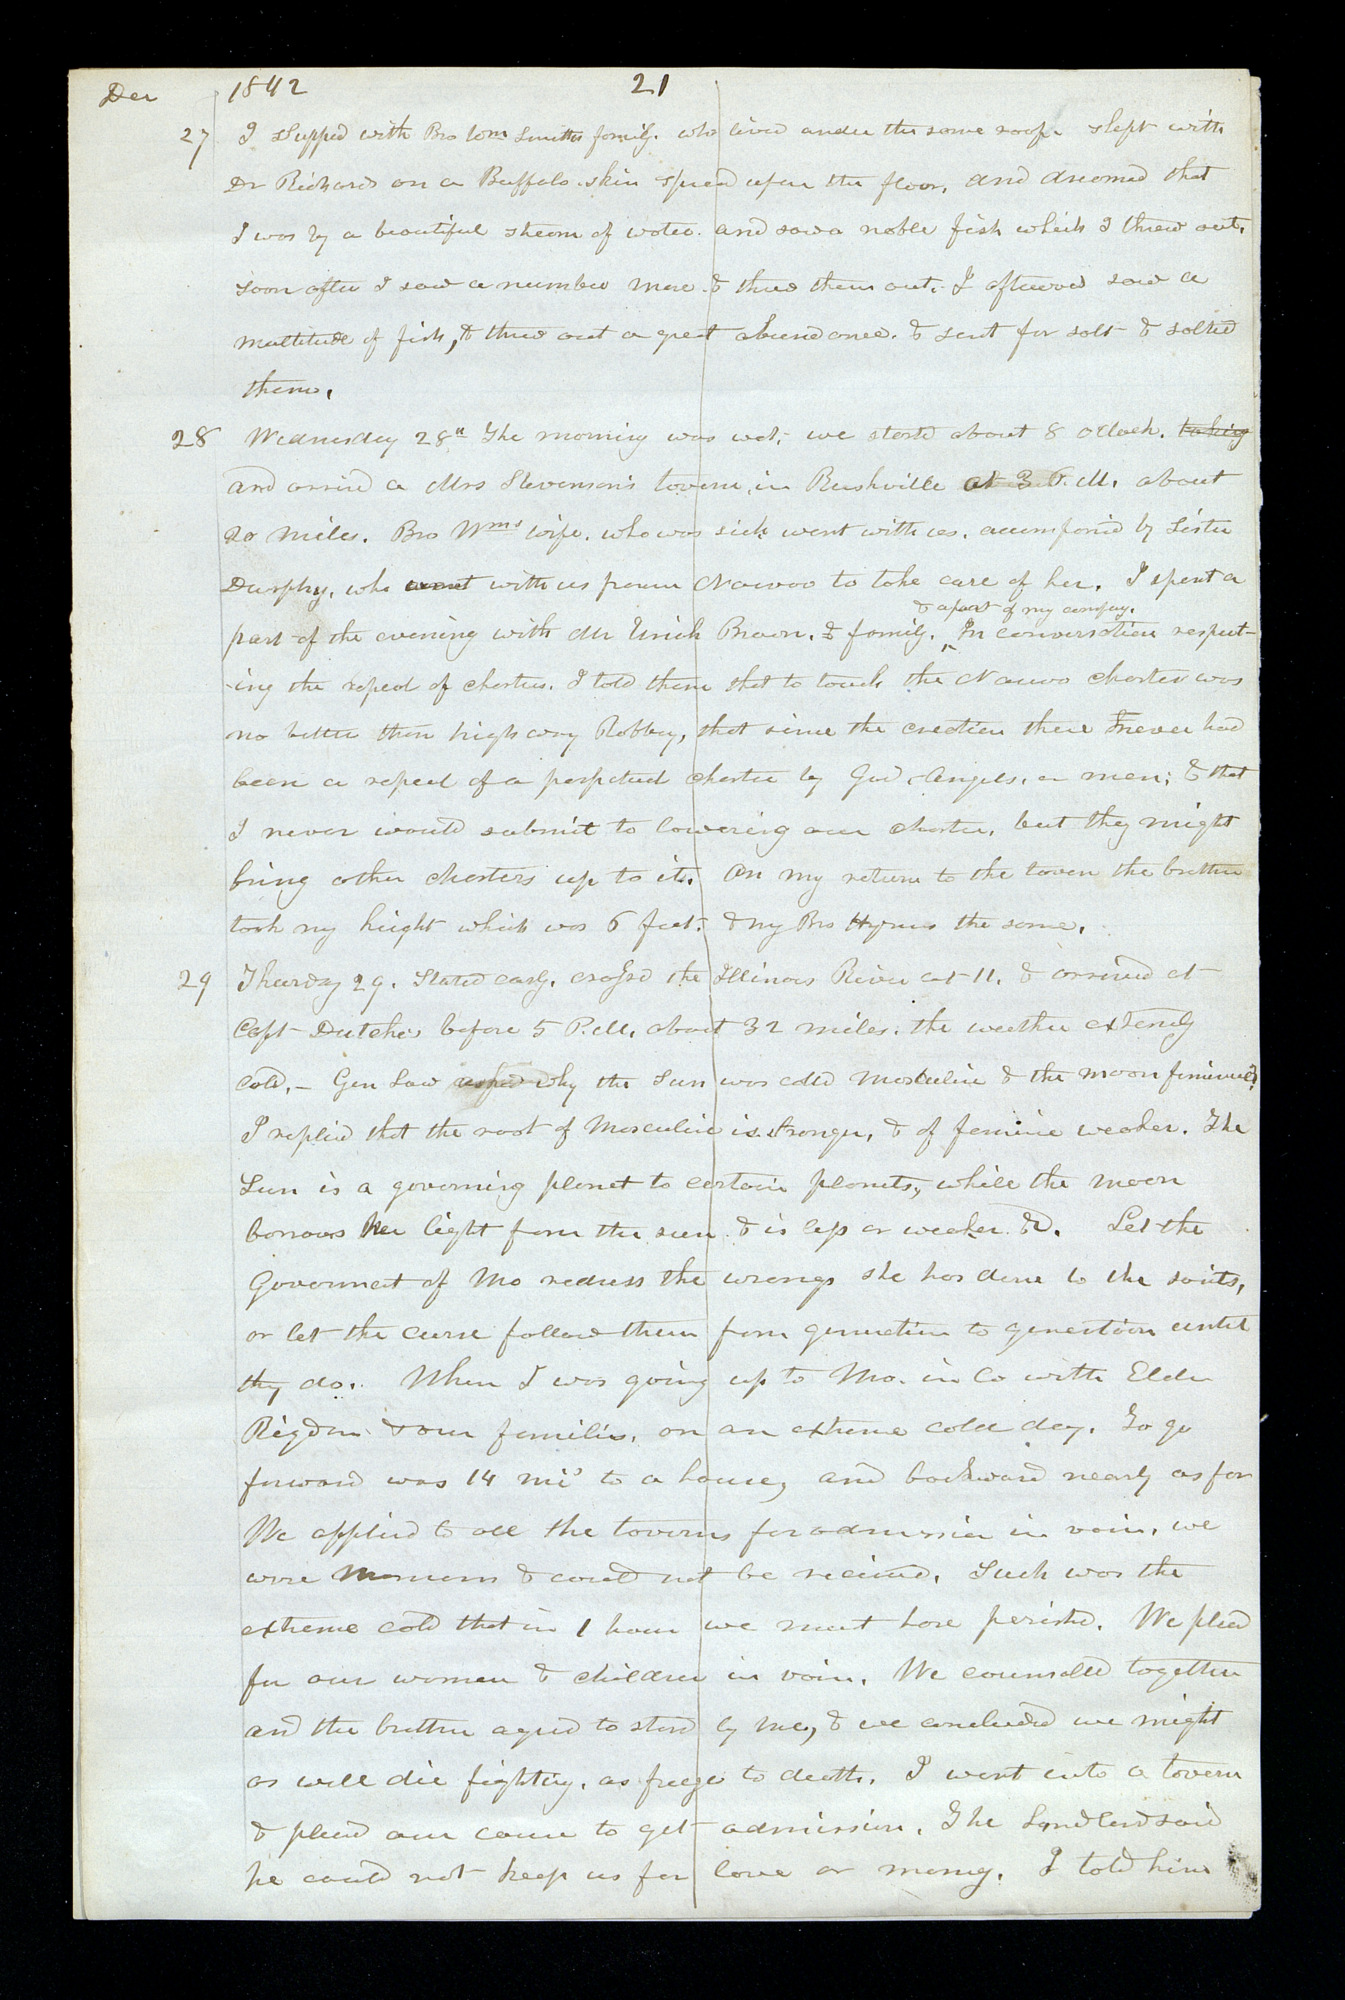 Dec 1842 21
27 I supped with Bro Wms Smiths family. who lived under the same roof. slept with
Dr Richards on a Buffalo skin spread upon the floor, and dreamed that
I was by a beautiful stream of water. and saw a noble fish which I threw out.
soon after I saw a number more & threw them out. I afterward saw a
multitude of fish, & threw out a great abundance. & sent for salt & salted
them.
28 Wednesday 28th The morning was wet; we started about 8 oclock. taking
and arrived a Mrs Stevenson's tavern, in Rushville at 3 P.M. about
20 miles. Bro Wms wife. who was sick went with us. accompanied by Sister
Durphy, who went with us from Nauvoo to take care of her. I spent a
& a part of my company.
part of the evening with Mr Urich Brown. & family. ^ In conversation respect-
-ing the repeal of charters. I told them that to touch the Nauvoo charter was
no better than highway Robbery, that since the creation there never had
been a repeal of a perpetual charter by God, Angels, or men; & that
I never would submit to lowering our charter, but they might
bring other charters up to it. On my return to the tavern the brethren
took my hieght which was 6 feet. & my Bro Hyrum the same.
29 Thursday 29. Started early. crossed the Illinois River at 11. & arrived at
Capt Dutche's before 5 P.M. about 32 miles. the weather extremely
cold. — Gen Law asked why the Sun was called Masculine & the moon feminine?
I replied that the root of Masculine is stronger, & of feminine weaker. The
Sun is a governing planet to certain planets, while the moon
borrows her light from the sun & is less or weaker &c. Let the
Government of Mo redress the wrongs she has done to the saints,
or let the curse follow them from generation to generation until
they do. When I was going up to Mo. in Co with Elder
Rigdon & our families, on an extreme cold day. To go
forward was 14 mis to a house, and backward nearly as far
We applied to all the taverns for admission in vain, we
were Mormons & could not be recieved. Such was the
extreme cold that in 1 hour we must have perished. We plead
for our women & children in vain. We counselled together
and the brethren agreed to stand by me, & we concluded we might
as well die fighting, as freeze to death. I went into a tavern
& plead our cause to get admission. The Landlord said
he could not keep us for love or money. I told him